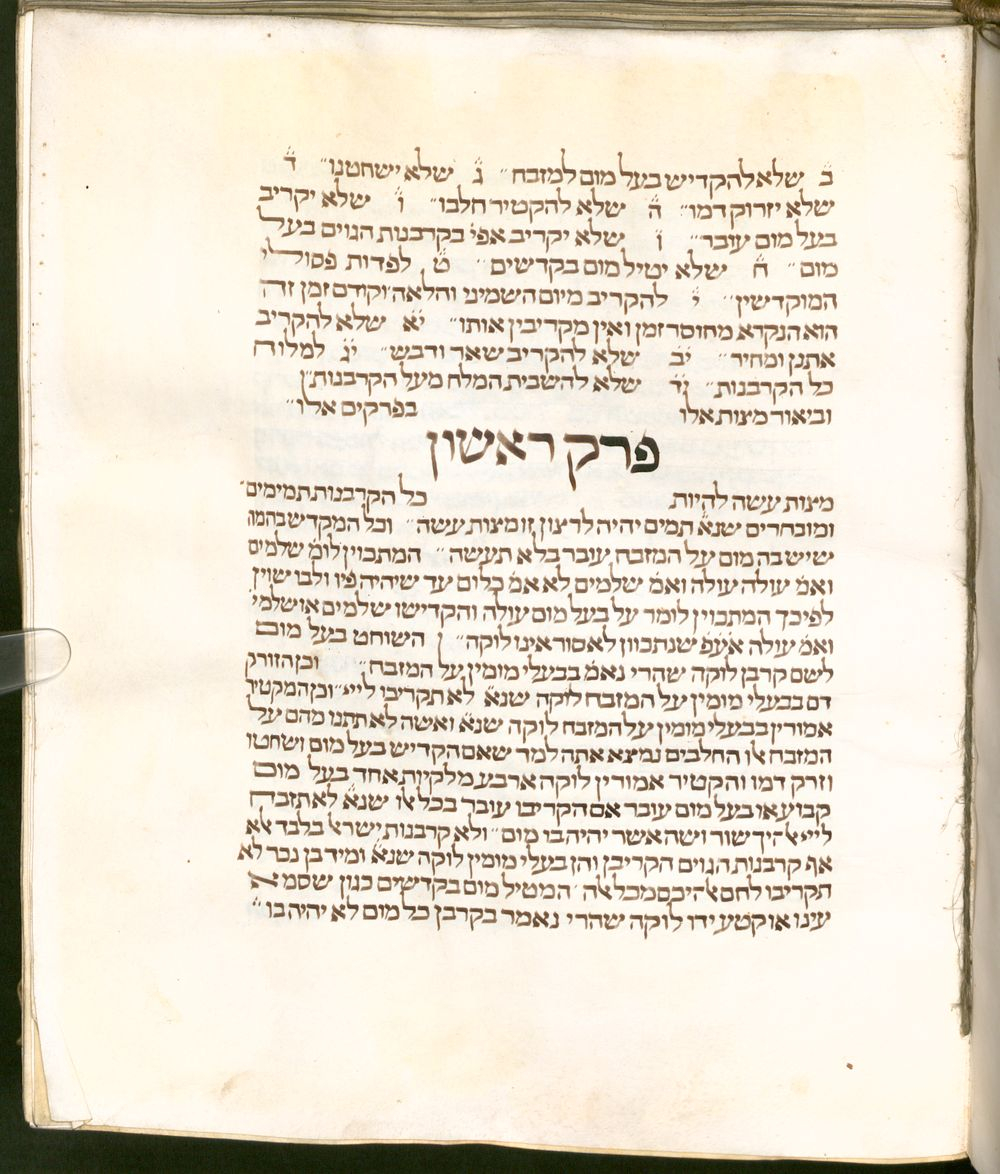 ב שלא להקדיש בעל מום למזבח״ ג שלא ישחטנו״ ד
שלא יזרוק דמו״ ה שלא להקטיר חלבו״ ו שלא יקריב
בעל מום עובר״ ז שלא יקריב אפי׳ בקרבנות הגוים בעל
מום״ ח שלא יטיל מום בקדשים״ ט לפדות פסולי
המוקדשין״ י להקריב מיום השמיני והלאה וקודם זמן זה
הוא הנקרא מחוסר זמן ואין מקריבין אותו״ יא שלא להקריב
אתנן ומחיר״ יב שלא להקריב שאר ודבש״ יג למלוח
כל הקרבנות״ יד שלא להשבית המלח מעל הקרבנות״
וביאור מצות אלו בפרקים אלו״
פרק ראשון
מצות עשה להיות כל הקרבנות תמימים
ומובחרים שנא׳ תמים יהיה לרצון זו מצות עשה״ וכל המקדש בהמה
שיש בה מום על המזבח עובר בלא תעשה״ המתכוין לומ׳ שלמים
ואמ׳ עולה עולה ואמ׳ שלמים לא אמ׳ כלום עד שיהיה פיו ולבו שוין
לפיכך המתכוין לומר על בעל מום עולה והקדישו שלמים או שלמי׳
ואמ׳ עולה אעפ׳ שנתכוון לאסור אינו לוקה״ השוחט בעל מום
לשם קרבן לוקה שהרי נאמ׳ בבעלי מומין על המזבח״ וכן הזורק
דם בבעלי מומין על המזבח לוקה שנא׳ לא תקריבו לייי״ וכן המקטיר
אמורין בבעלי מומין על המזבח לוקה שנא׳ ואשה לא תתנו מהם על
המזבח אלו החלבים נמצא אתה למד שאם הקדיש בעל מום ושחטו
וזרק דמו והקטיר אמורין לוקה ארבע מלקיות אחד בעל מום
קבוע או בעל מום עובר אם הקריבו עובר בכל אלו שנא׳ לא תזבח
לייי אלהיך שור ושה אשר יהיה בו מום״ ולא קרבנות ישראל בלבד אלא
אף קרבנות הגוים הקריבן והן בעלי מומין לוקה שנא׳ ומיד בן נכר לא
תקריבו לחם אלהיכם מכל אלה׳ המטיל מום בקדשים כגון שסמא
עינו או קטע ידו לוקה שהרי נאמר בקרבן כל מום לא יהיה בו״